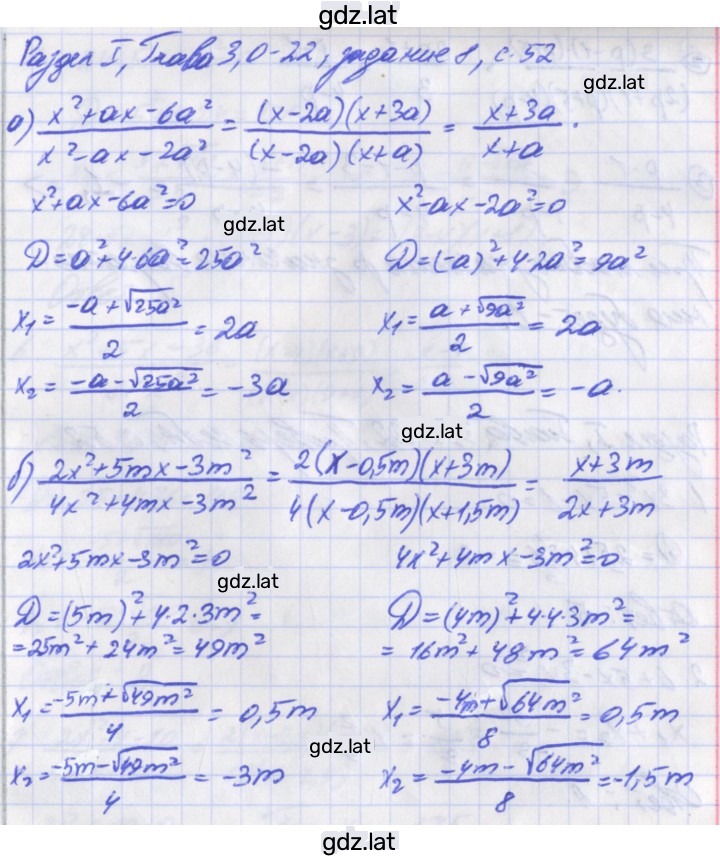 gdz.lat
Раздел I, Глава 3, О-22, задание 8, с. 52
gdz.lat
а) (x²+ax-6a²)/(x²-ax-2a²) = ((x-2a)(x+3a))/((x-2a)(x+a)) = (x+3a)/(x+a).
x²+ax-6a²=0 x²-ax-2a²=0
gdz.lat
D=a²+4·6a²=25a² D=(-a)²+4·2a²=9a²
x₁=(-a+√25a²)/2=2a x₁=(a+√9a²)/2=2a
x₂=(-a-√25a²)/2=-3a x₂=(a-√9a²)/2=-a.
gdz.lat
б) (2x²+5mx-3m²)/(4x²+4mx-3m²) = (2(x-0,5m)(x+3m))/(4(x-0,5m)(x+1,5m)) = (x+3m)/(2x+3m)
2x²+5mx-3m²=0 4x²+4mx-3m²=0
gdz.lat
D=(5m)²+4·2·3m²= D=(4m)²+4·4·3m²=
=25m²+24m²=49m² =16m²+48m²=64m²
x₁=(-5m+√49m²)/4=0,5m x₁=(-4m+√64m²)/8=0,5m
gdz.lat
x₂=(-5m-√49m²)/4=-3m x₂=(-4m-√64m²)/8=-1,5m
gdz.lat